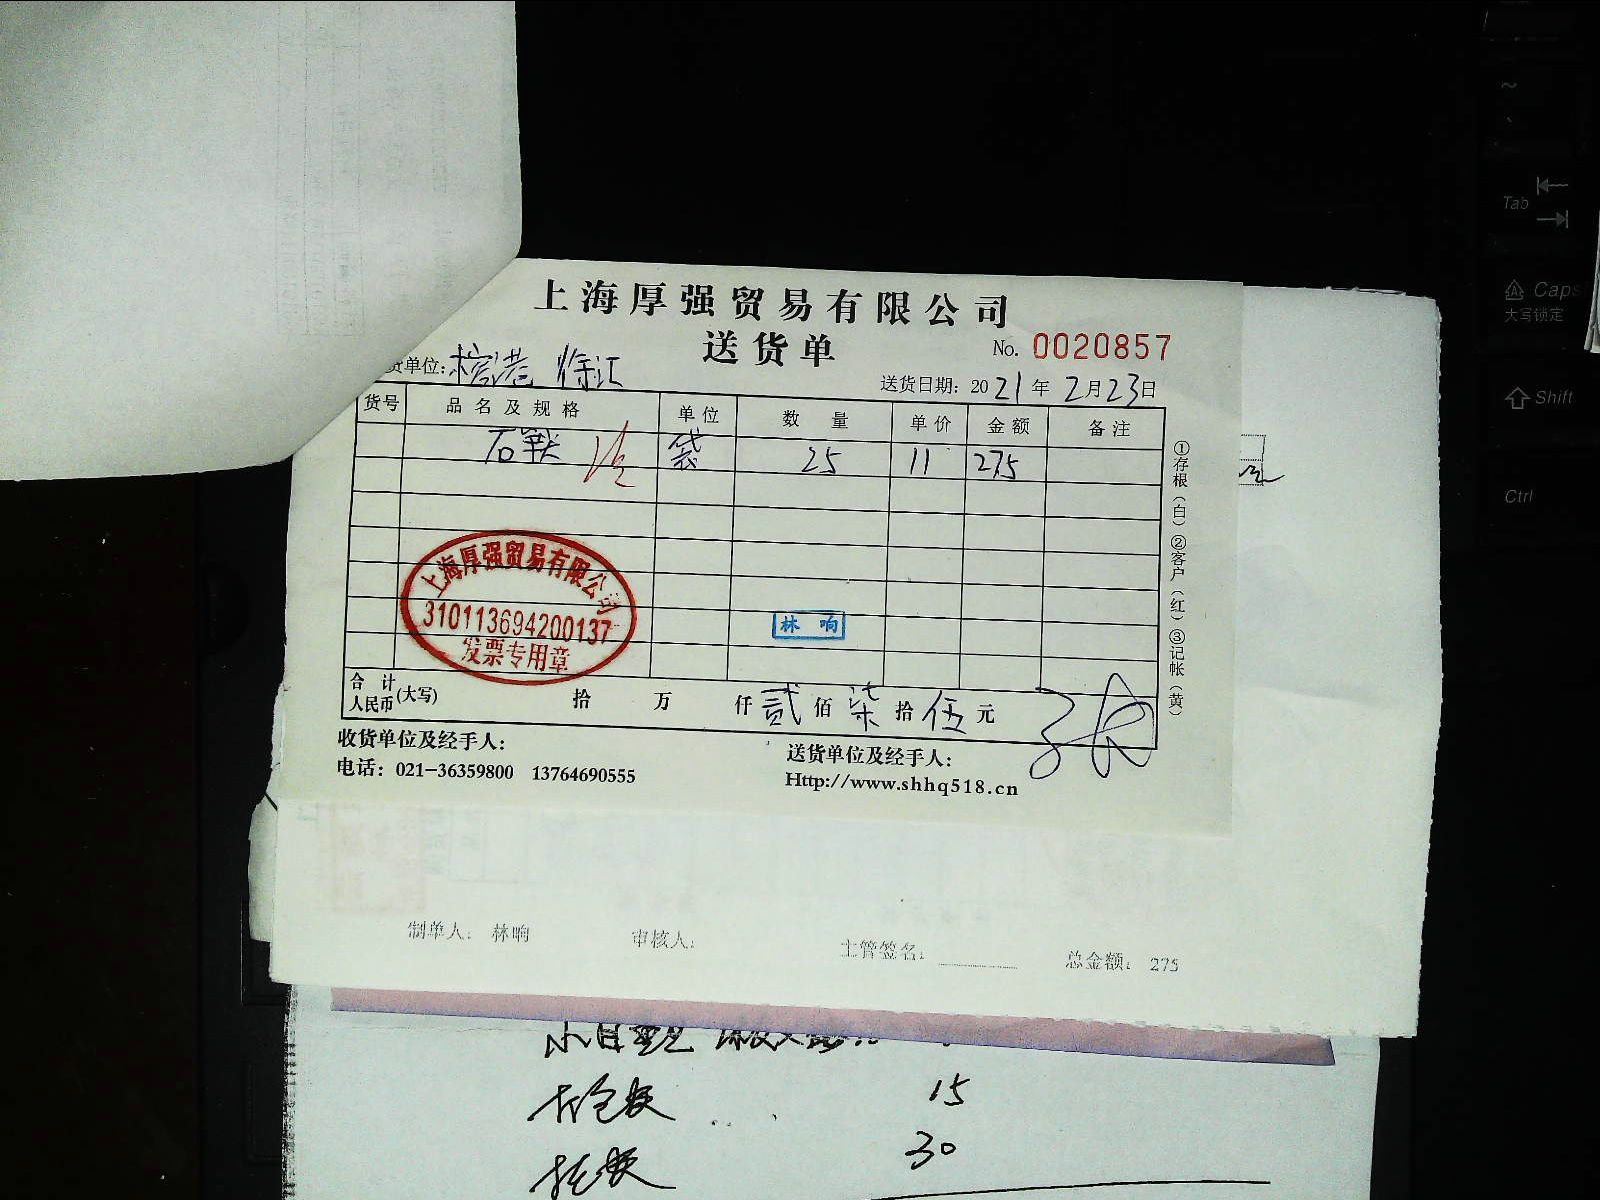 上海厚强贸易有限公司
送货单
No. 0020857
货单位: 徐汇
送货日期: 2021年2月23日
货号 品名及规格 单位 数量 单价 金额 备注
袋 25 11 275
①存根(白)②客户(红)③记帐(黄)
上海厚强贸易有限公司
310113694200137
发票专用章
林 响
合计人民币(大写) 拾 万 仟 贰 佰 柒 拾 伍 元
收货单位及经手人:
送货单位及经手人:
电话: 021-36359800 13764690555
Http://www.shhq518.cn
制单人: 林响 审核人: 主管签名: 总金额: 275
15
30
Tab
Caps
大写锁定
Shift
Ctrl